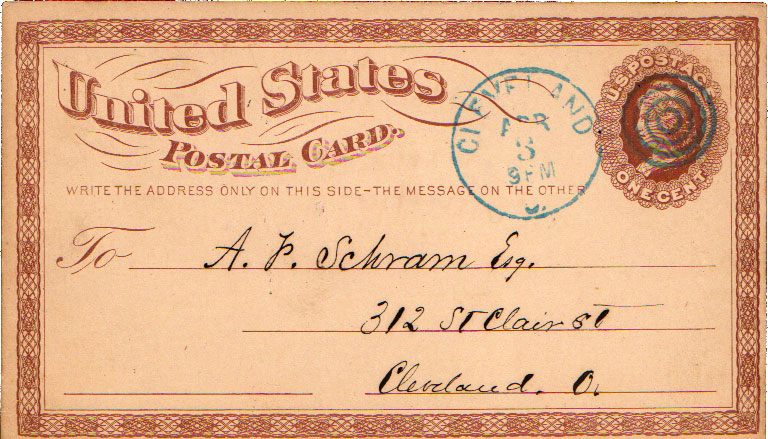 United States
POSTAL CARD.
WRITE THE ADDRESS ONLY ON THIS SIDE-THE MESSAGE ON THE OTHER
U.S. POSTAGE
ONE CENT
CLEVELAND
APR
3
9PM
O.
To A. P. Schram Esq.
312 St Clair st
Cleveland. O.